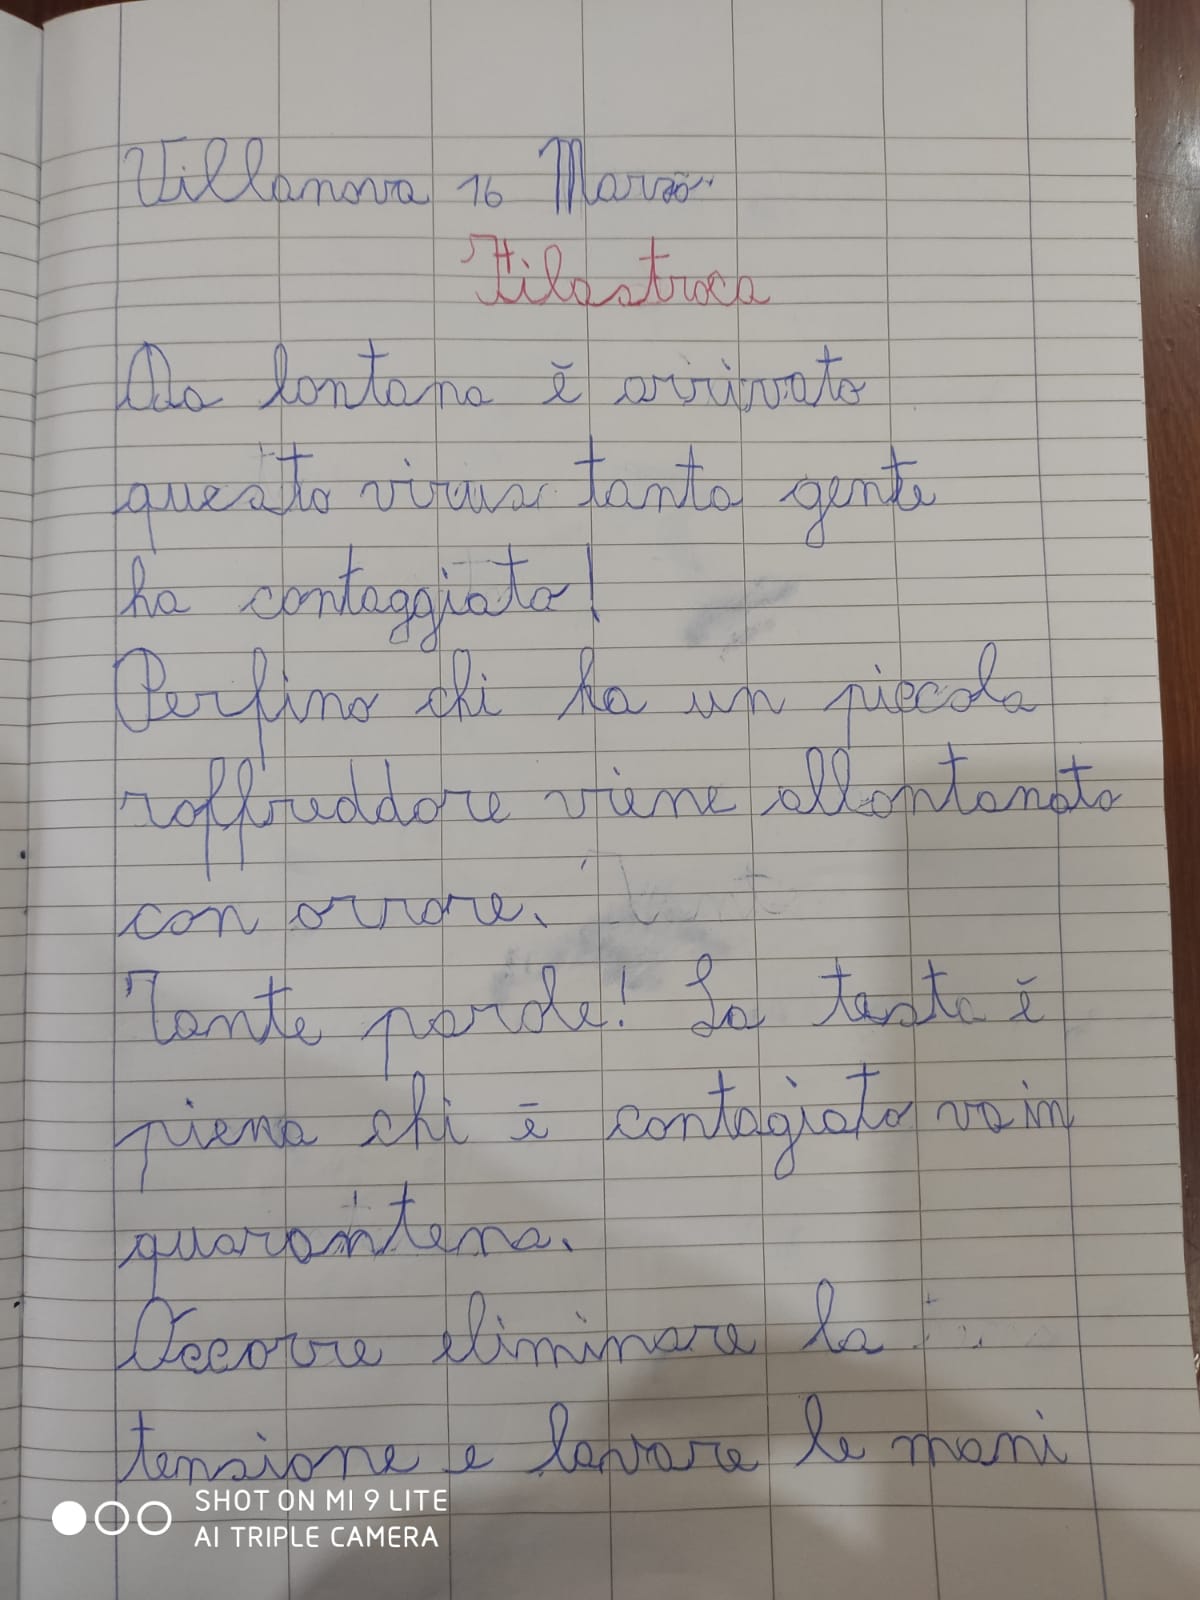 Villanova 16 Marzo
Filastroca
Da lontano è arrivato
questo virus tanta gente
ha contaggiato!
Perfino chi ha un piccola
raffreddore viene allontanato
con orrore.
Tante parole! La testa è
piena chi è contagiato va in
quarantena.
Occorre eliminare la
tensione e lavare le mani
SHOT ON MI 9 LITE
AI TRIPLE CAMERA